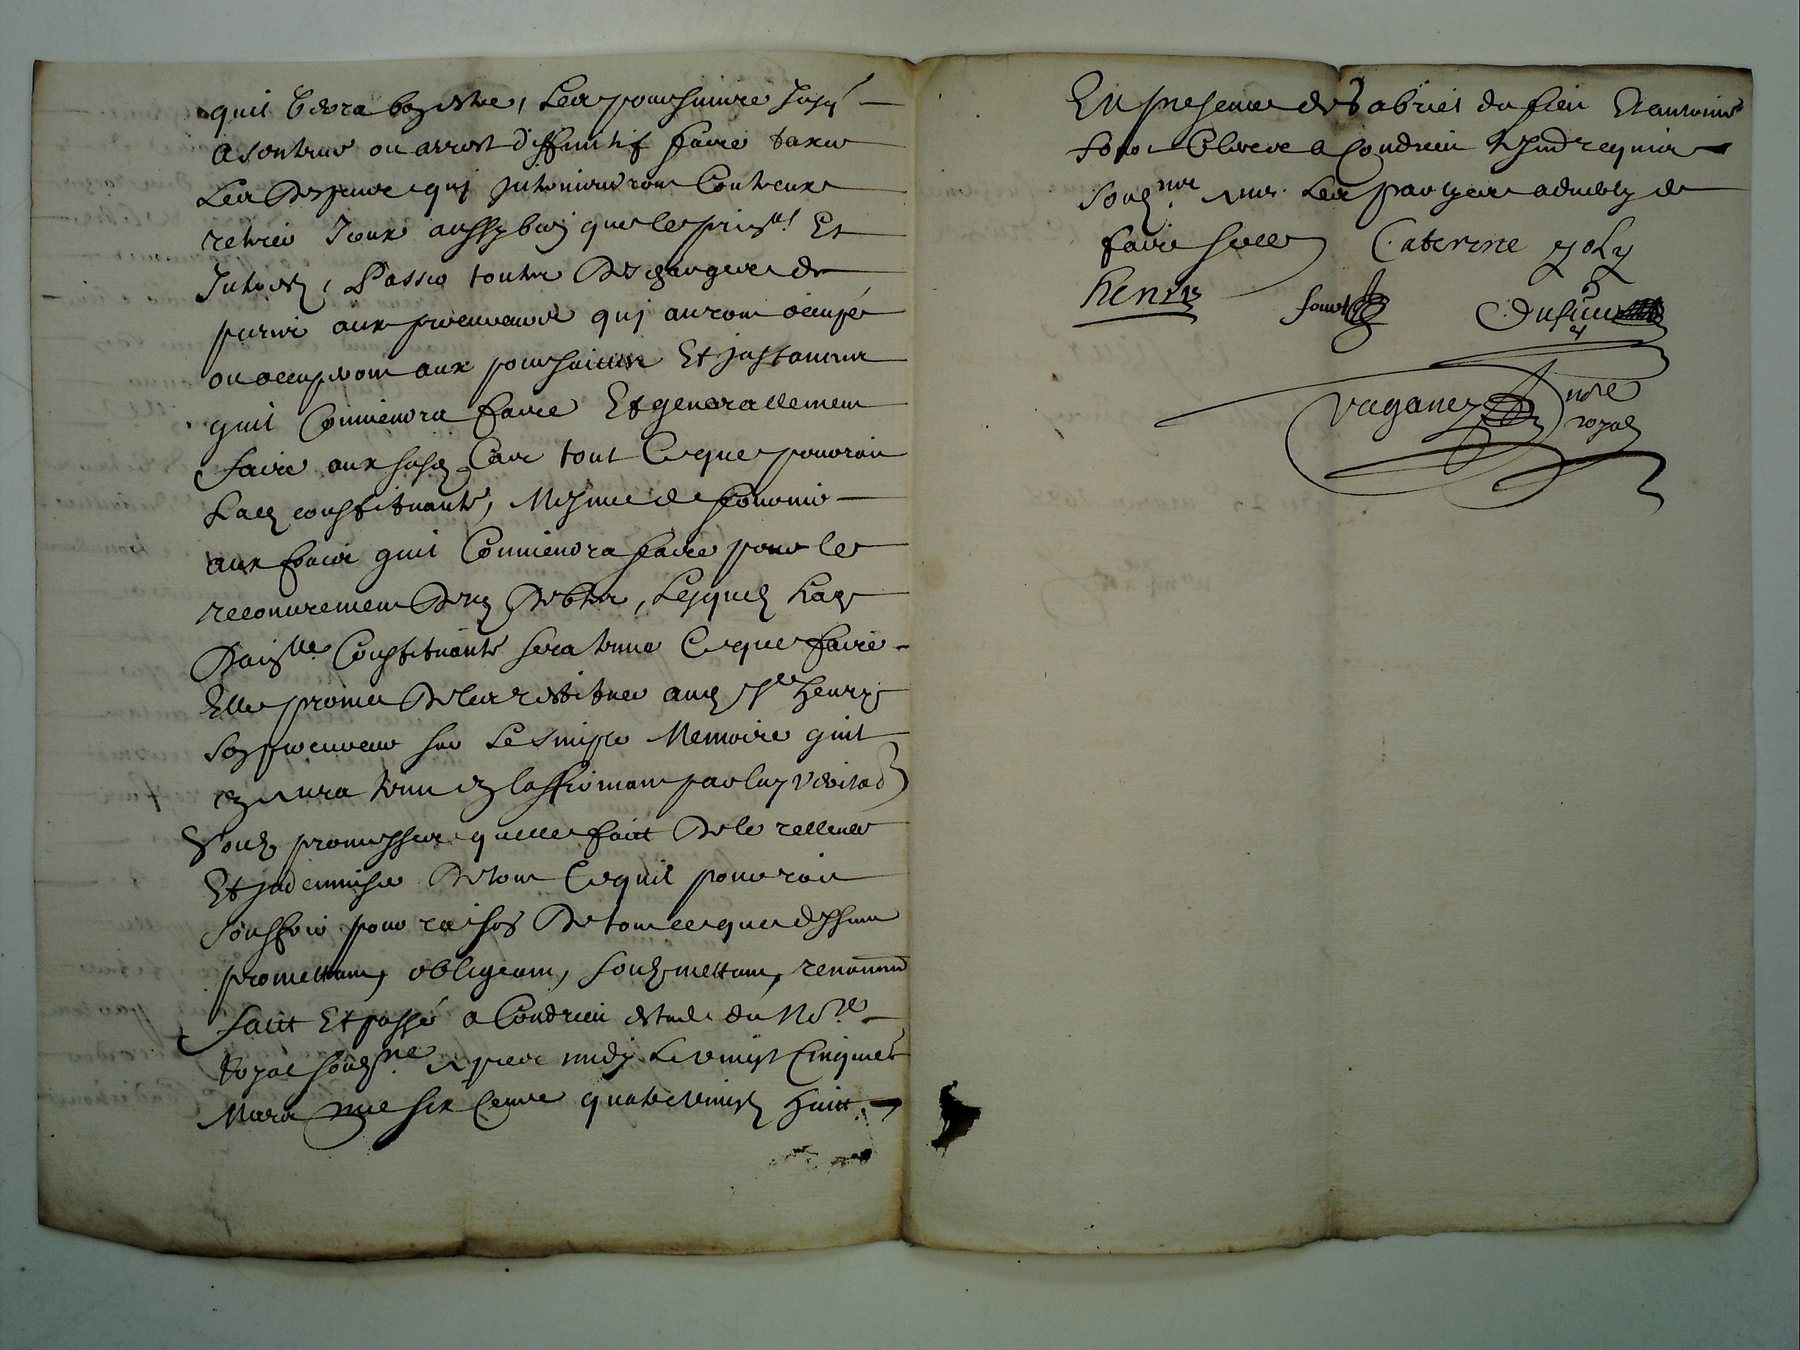 quil verra bon estre, Les poursuivre jusq
a sentence ou arrest diffinitif faire taxer
Les Despens quj jnterviendront Contreux
retirer Iceux aussy bien que le prin.al Et
Jnterestz, Passer touttes Deschargees de
purnir aux procureurs quj auront occupés
ou occuperont aux poursuittes Et jnstances
quil Conviendra faire Et generallement
faire aux susd Cas tout Ce que pouroit
Lad constituante, Mesme de fournir
aux frais quil Conviendra faire pour le
recouvrement Desd Debtes, Lesquelz Lad
Dais.lle Constituante sera tenue Ce que faire
Elle promet De les restituer aud Sr henrys
Son procureur sur Le Simple Memoire quil
en aura tenu en laffirmant par luy veritad
Soubz promesses quelle faict De le rellever
Et jndemniser De tout Ce quil pourroit
Souffrir pour raison De tout ce que dessus
promettant, obligeant, soubzmettant, renonceant
faict Et passé a Condrieu estude du No.re
Royal soubz.ne apres midy Le vingt Cinquie
Mars mil six Cents quatrevingtz huict
En presence de Gabriel du fieu Et antoine
Clercs a Condrieu
soubz.nez avec Les parties
faire Caterine joly
henrys Dufieu
Vaganey no.re
royal